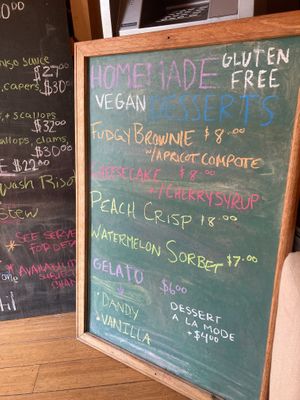 SAUCE
$27.00
, CAPERS, $30.00
, + SCALLOPS
$32.00
ALLOPS, CLAMS,
$30.00
$22.00
STEW
* SEE SERVER
FOR DETA
* AVAILABILITY
SUBJECT
CHAN
HOMEMADE GLUTEN
FREE
VEGAN DESSERTS
FUDGY BROWNIE $8.00
W/APRICOT COMPOTE
CHEESECAKE $8.00
W/CHERRY SYRUP
PEACH CRISP $8.00
WATERMELON SORBET $7.00
GELATO $6.00
* DANDY
* VANILLA
DESSERT
A LA MODE
+$4.00